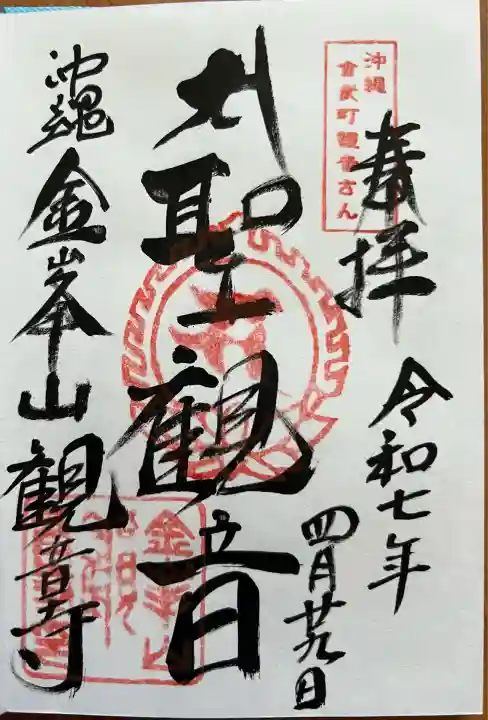 奉拝
令和七年
四月廿九日
聖観音
沖縄
金峯山観音寺
沖縄
金武町観音さん